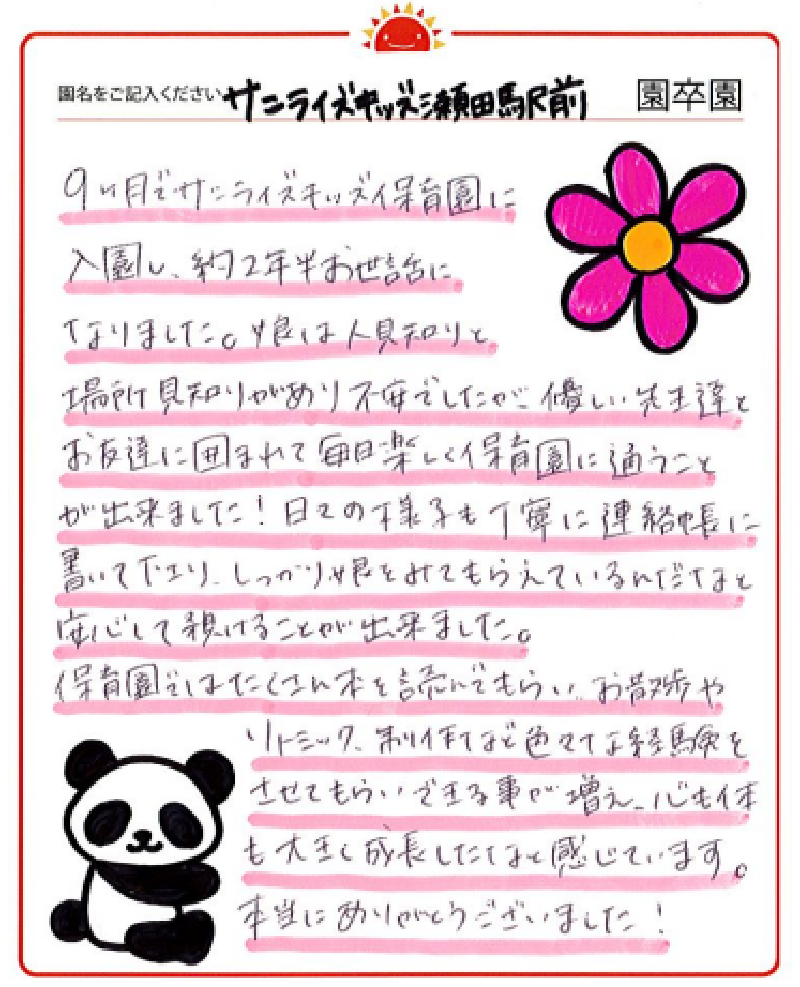 園名をご記入ください サンライズキッズ瀬田駅前 園卒園
9ヶ月でサンライズキッズ保育園に
入園し、約2年半お世話に
なりました。娘は人見知りと
場所見知りがあり不安でしたが、優しい先生達と
お友達に囲まれて毎日楽しく保育園に通うこと
が出来ました！日々の様子も丁寧に連絡帳に
書いて下さり、しっかり娘をみてもらえているんだなと
安心して預けることが出来ました。
保育園ではたくさん本を読んでもらい、お散歩や
リトミック、制作など色々な経験を
させてもらい、できる事が増え、心も体
も大きく成長したなと感じています。
本当にありがとうございました！